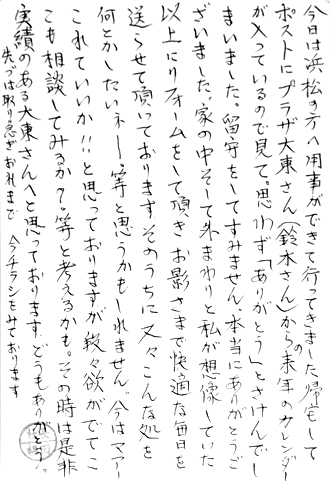 今日は浜松の方へ用事ができて行ってきました 帰宅して
ポストにプラザ大東さん(鈴木さん)からの来年のカレンダー
が入っているので見て。思わず「ありがとう」とさけんでし
まいました。留守をしてすみません。本当にありがとうご
ざいました。家の中そして外まわりと私が想像していた
以上にリフォームをして頂き お影さまで快適な毎日を
送らせて頂いております。そのうちに又々こんな処を
何とかしたいネー。等と思うかもしれません 今はマアー
これでいいか!!と思っておりますが 段々欲がでてこ
こも相談してみるか?等と考えるかも。その時は是非
実績のある大東さんへと思っております。どうもありがとう。
先づは取り急ぎお礼まで 今チラシをみております